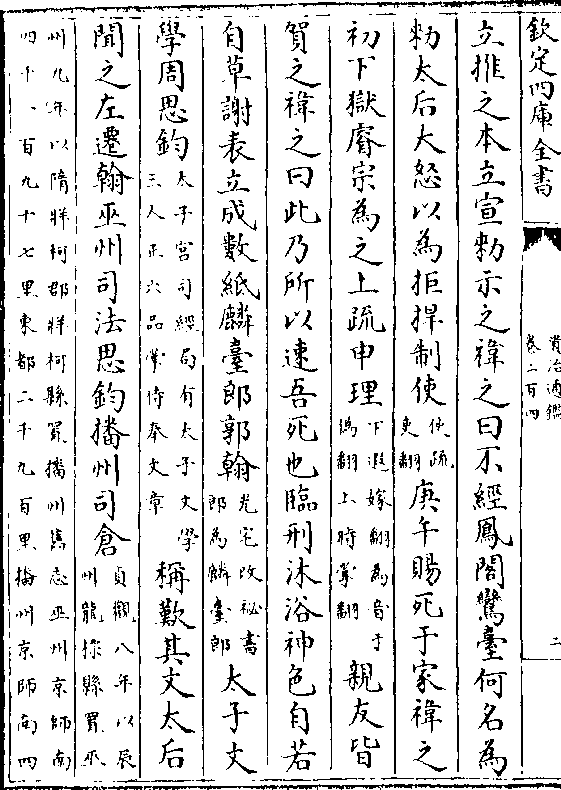 欽定四庫全書
資治通鑑
卷二百四
二
立推之本立宣勑示之禕之曰不經鳳閣鸞臺何名為
勑太后大怒以為拒捍制使
使疏
吏翻
庚午賜死于家禕之
初下獄睿宗為之上疏申理
下遐嫁翻為音于
偽翻上時掌翻
親友皆
賀之禕之曰此乃所以速吾死也臨刑沐浴神色自若
自草謝表立成數紙麟臺郎郭翰
光宅改祕書
郎為麟臺郎
太子文
學周思鈞
太子宮司經局有太子文學
三人正六品掌侍奉文章
稱歎其文太后
聞之左遷翰巫州司法思鈞播州司倉
貞觀八年以辰
州龍標縣置巫
州九年以隋牂柯郡牂柯縣置播州舊志巫州京師南
四千一百九十七里東都二千九百里播州京師南四